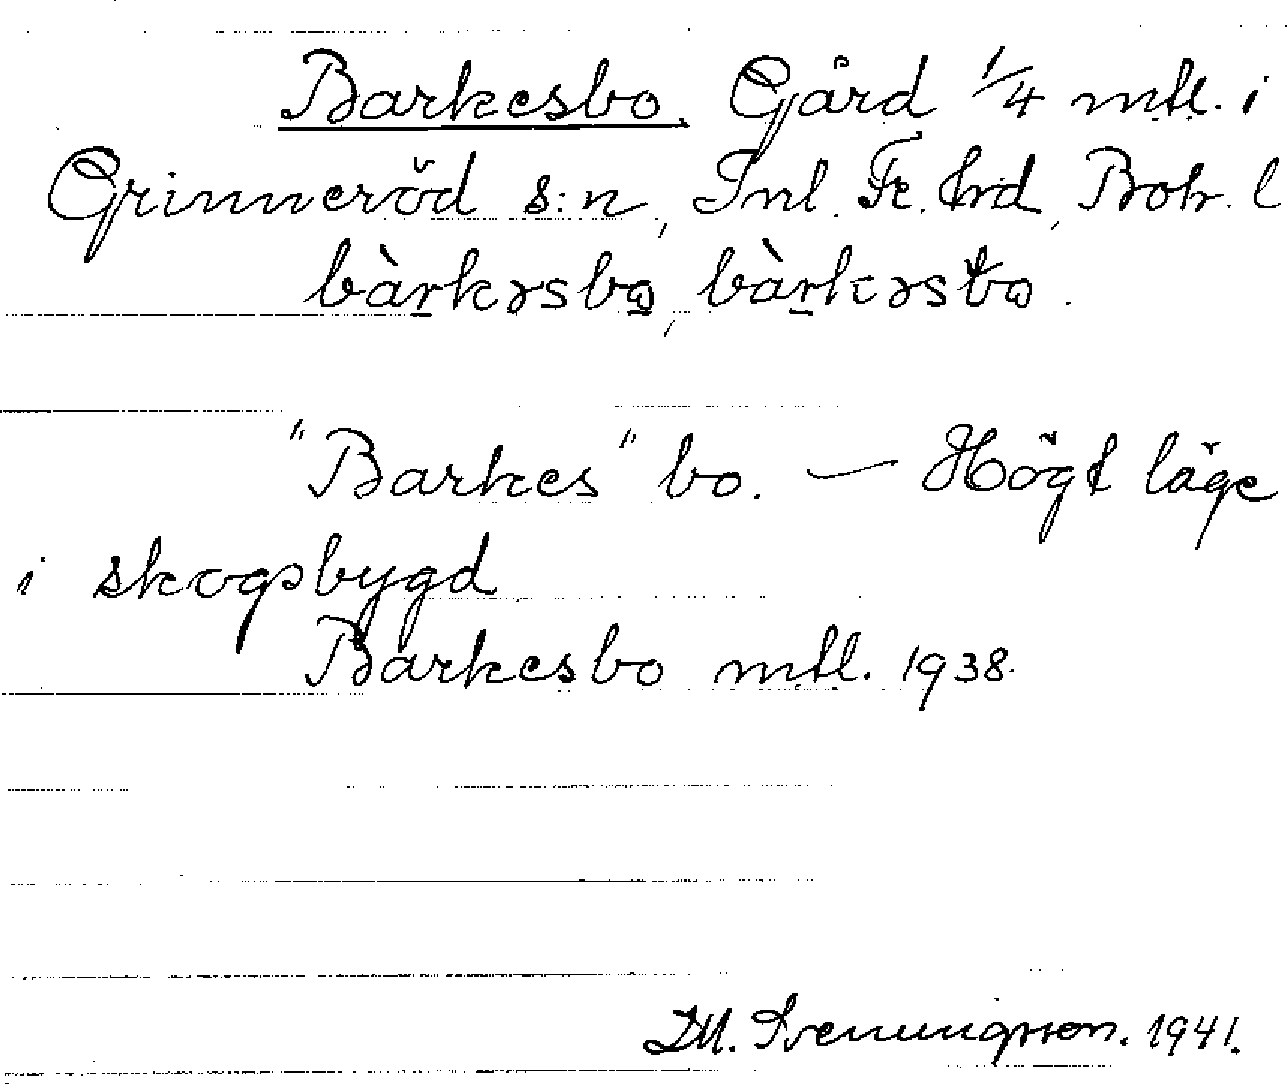 Barkesbo. Gård 1/4 mtl. i
Grinneröd s:n, Inl. Fr. hrd, Boh. l
bàrkəsbo, bàrkəsbo.
"Barkes" bo. — Högt läge
i skogsbygd
Barkesbo mtl. 1938.
Svenungsson. 1941.